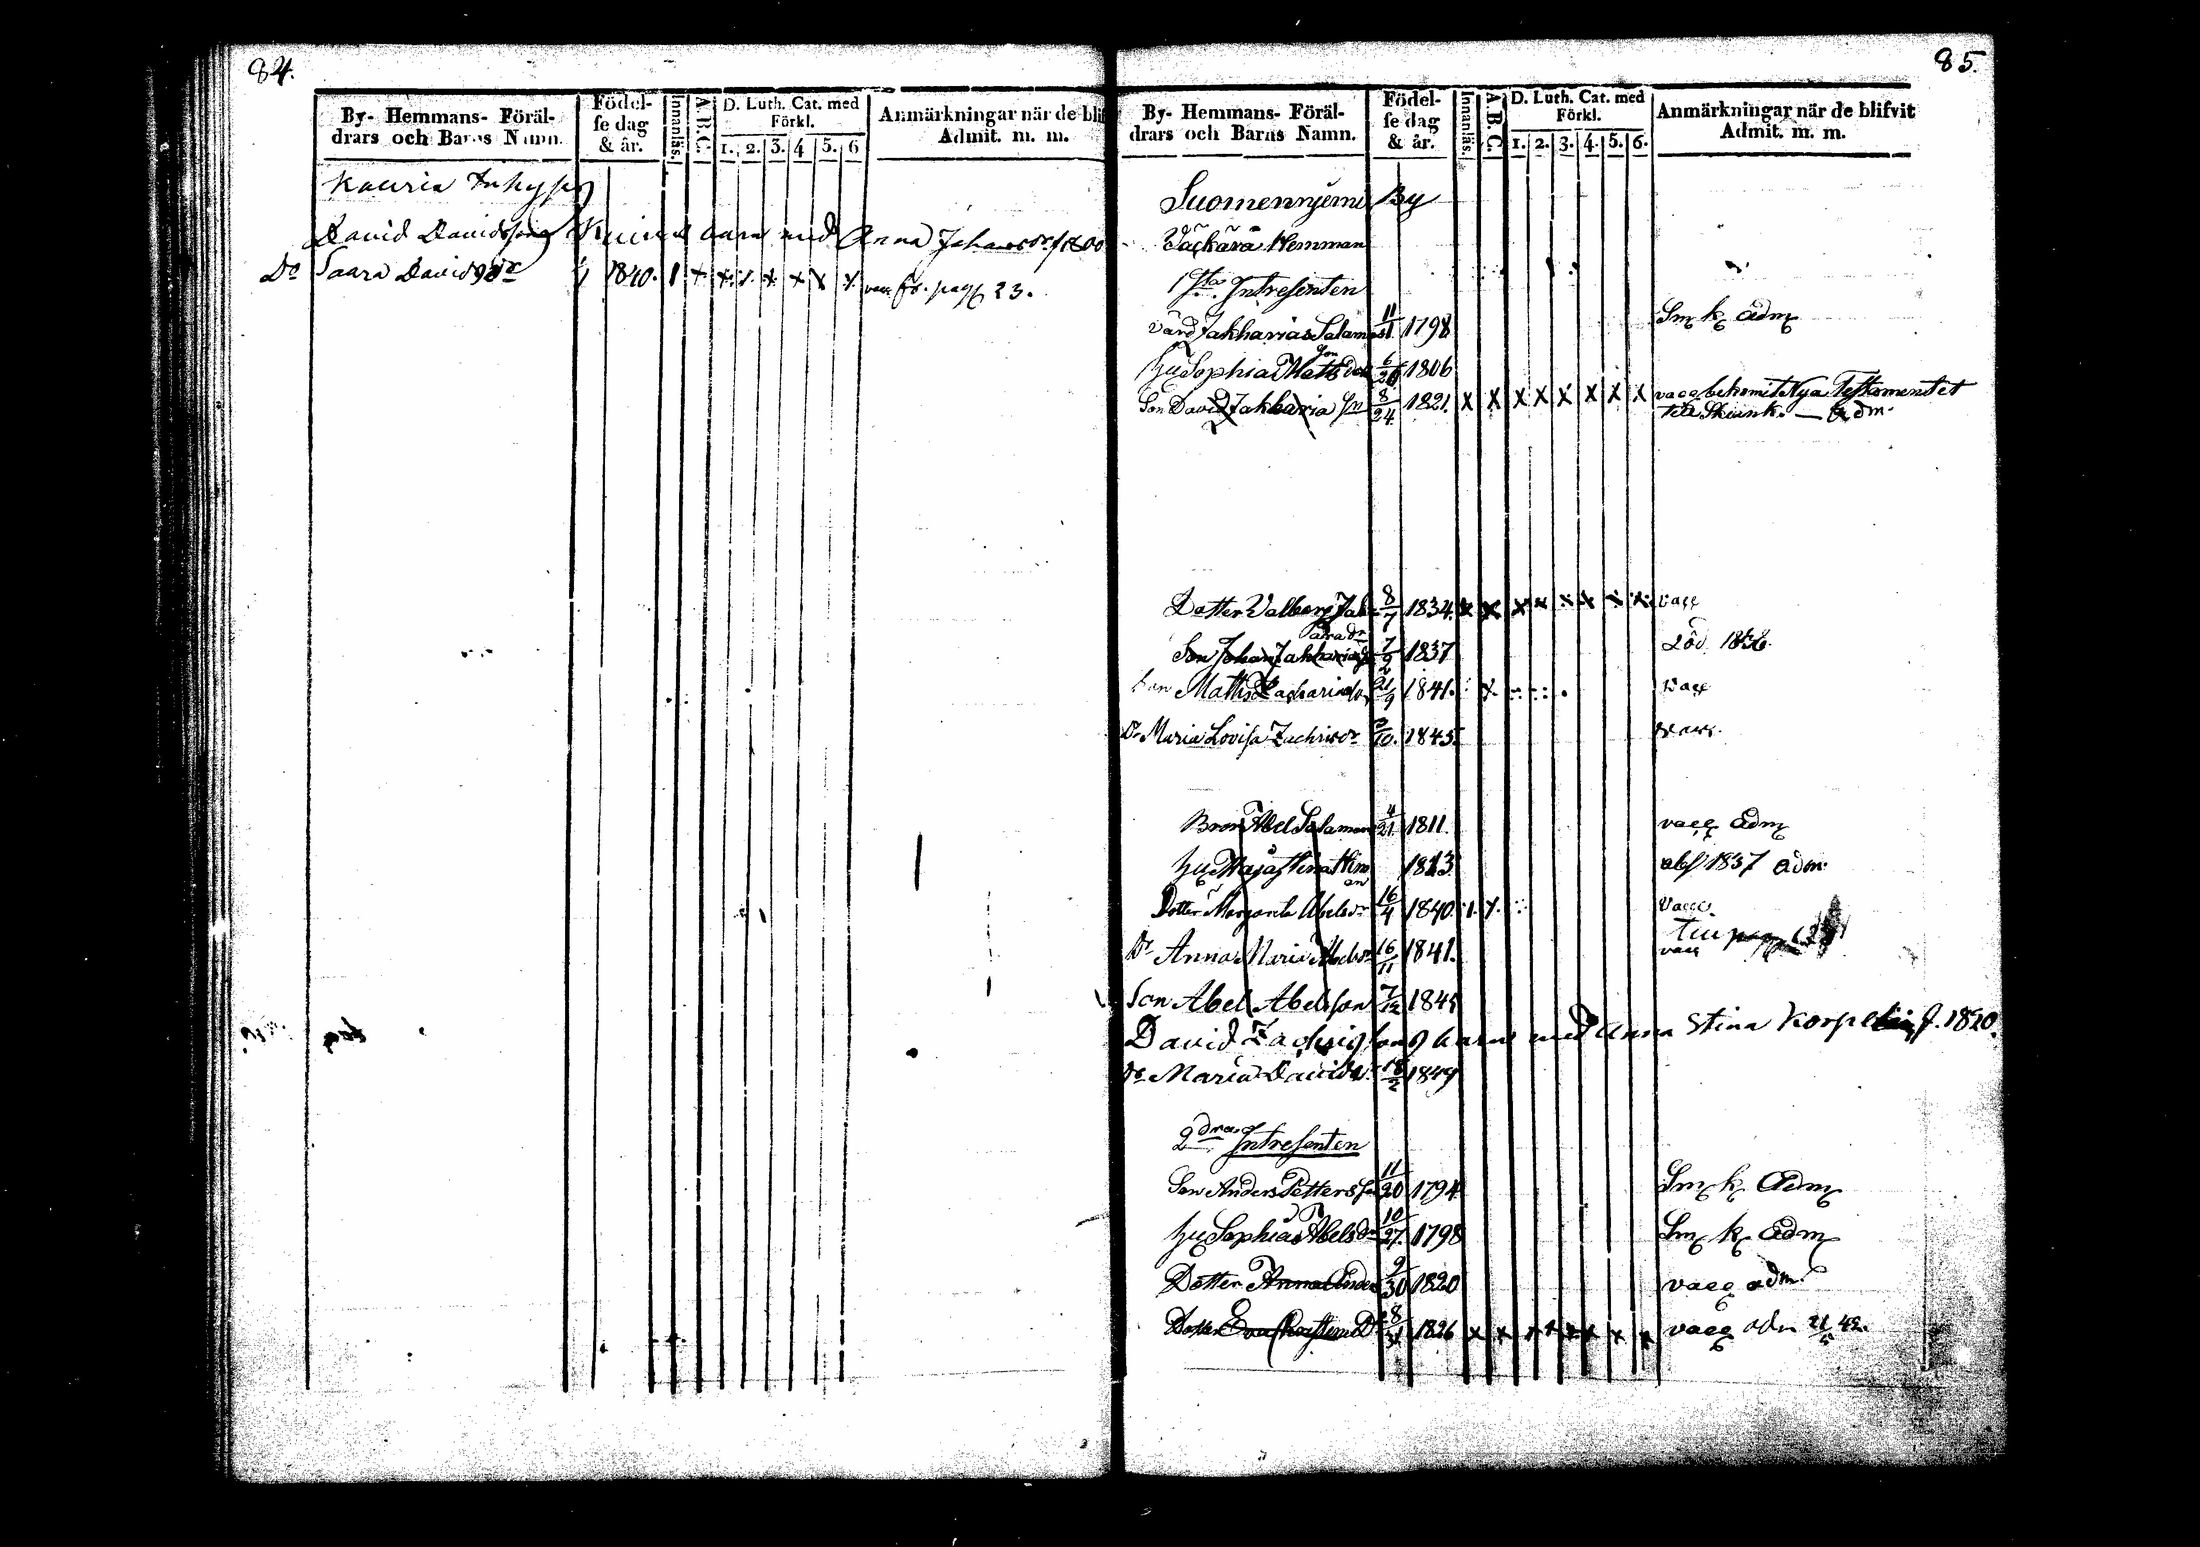 84.
By- Hemmans- Föräl-
drars och Barns Namn.
Födel-
se dag
& år.
Innanläs.
A.B.C.
D. Luth. Cat. med
Förkl.
1. 2. 3. 4 5. 6
Anmärkningar när de blif
Admit. m. m.
David Davidsson barn med Anna Johansdr f 1800
Dr Saara Davidsdr 1840. pag 23.
85.
By- Hemmans- Föräl-
drars och Barns Namn.
Födel-
se dag
& år.
Innanläs.
A.B.C.
D. Luth. Cat. med
Förkl.
1. 2. 3. 4. 5. 6.
Anmärkningar när de blifvit
Admit. m. m.
Suomennjemi By
Hemman
1sta Intresenten
Värd Zakharias Salamo 11/1 1798 Sm k adm
Hu Sophia Matts 6/20 1806
Son David Zakharia Sn 8/24 1821. x x x x x x x x vacc bekomit Nya Testamentet
till Skiänk. — adm.
Dotter Valborg Zak 8/7 1834. x x x x x x x x vacc
Son Johan Zakharias 7/2 1837 död
Son Matts Zacharia 21/9 1841. vacc
Dr Maria Lovisa Zachrisdr /10. 1845. vacc.
Bror Abel Salamon 4/21 1811. vacc adm
Hu Maja Stina 1813 abs 1837 adm.
Dotter Margareta Abelsdr 16/4 1840. vacc.
Dr Anna Maria Abelsdr 16/11 1841. vacc
Son Abel Abelsson 7/12 1845
David Zachrisson barn med Anna Stina f. 1820.
Dr Maria Davidsdr 18/2 1849
2dra Intresenten
Son Anders Petterss 11/20 1794 Sm k adm
Hu Sophia Abelsdr 10/27. 1798 Sm k adm
Dotter Anna Anders 9/30 1820 vacc adm.
Dotter Eva 8/31 1826 x x x x x x x x vacc adm 21/5 42.